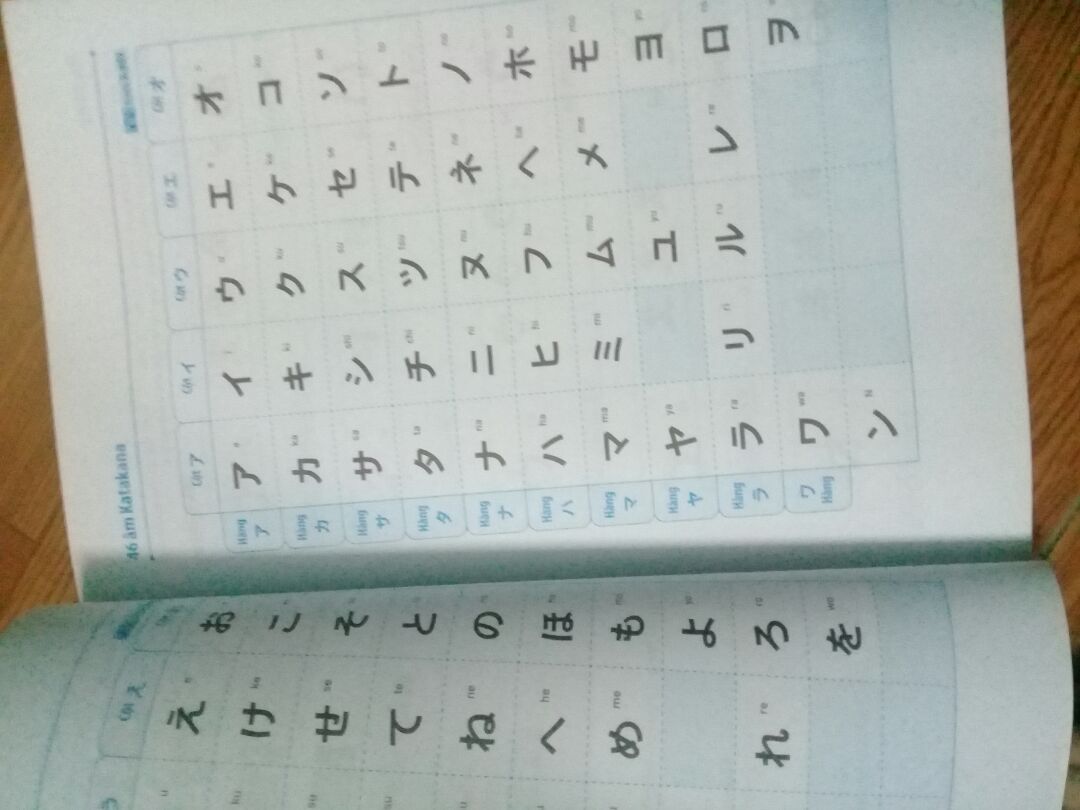 Cột え
え お
け こ
せ そ
て と
ね ne の
へ he ほ
め me も
よ
れ re ろ ro
を wo
46 âm Katakana
Cột ア Cột イ Cột ウ Cột エ Cột オ
Hàng ア ア イ ウ エ オ
Hàng カ カ ka キ ki ク ku ケ コ
Hàng サ サ sa シ shi ス su セ ソ
Hàng タ タ ta チ chi ツ tsu テ ト
Hàng ナ ナ na ニ ni ヌ nu ネ ne ノ
Hàng ハ ハ ha ヒ hi フ ヘ ホ
Hàng マ マ ma ミ mi ム mu メ me モ mo
Hàng ヤ ヤ ya ユ yu ヨ yo
Hàng ラ ラ ra リ ri ル ru レ re ロ
Hàng ワ ワ wa ヲ
ン N